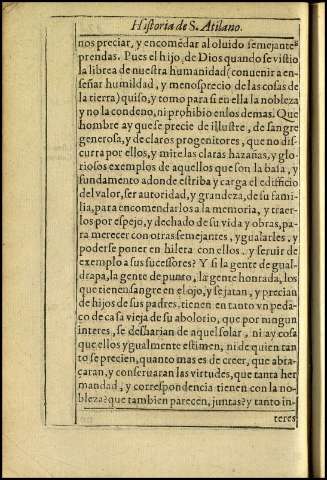 Historia de S. Atilano.
nos preciar, y encomẽdar al oluido semejantes
prendas. Pues el hijo de Dios quando se vistio
la librea de nuestra humanidad (conuenir a en-
señar humildad, y menosprecio de las cosas de
la tierra) quiso, y tomo para si en ella la nobleza
y no la condeno, ni prohibio en los demas. Que
hombre ay que se precie de illustre, de sangre
generosa, y de claros progenitores, que no dis-
curra por ellos, y mire las claras hazañas, y glo-
riosos exemplos de aquellos que son la basa, y
fundamento adonde estriba y carga el edificio
del valor, ser autoridad, y grandeza, de su fami-
lia, para encomendarlos a la memoria, y traer-
los por espejo, y dechado de su vida y obras, pa-
ra merecer con otras semejantes, ygualarles, y
poderse poner en hilera con ellos.. y seruir de
exemplo a sus sucessores? Y si la gente de gual-
drapa, la gente de punto, la gente honrada, los
que tienen sangre en el ojo, y se jatan, y precian
de hijos de sus padres, tienen en tanto vn peda-
ço de casa vieja de su abolorio, que por ningun
interes, se desharian de aquel solar, ni ay cosa
que ellos ygualmente estimen, ni de quien tan
to se precien, quanto mas es de creer, que abra-
çaran, y conseruaran las virtudes, que tanta her
mandad, y correspondencia tienen con la no-
bleza? que tambien parecen, juntas? y tanto in-
teres